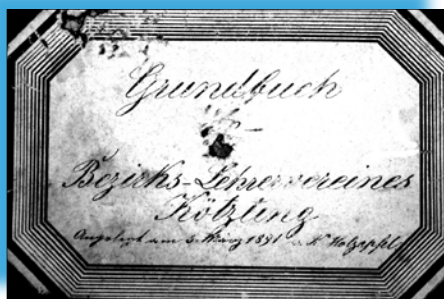 Grundbuch
Bezirks-Lehrervereines
Kötzting
Angelegt am 5. März 1891 v. W. Holzapfel